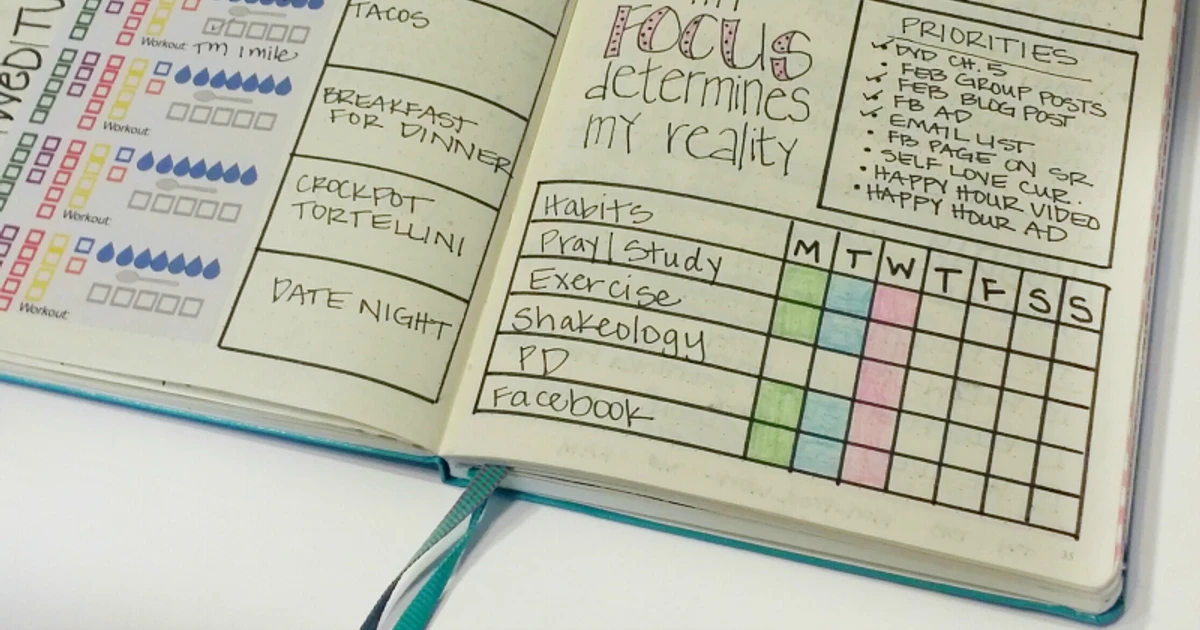 TACOS
Workout: TM 1 mile
BREAKFAST
FOR DINNER
Workout:
CROCKPOT
TORTELLINI
Workout:
DATE NIGHT
Workout:
FOCUS
determines
my reality
PRIORITIES
DVD CH. 5
FEB GROUP POSTS
FEB BLOG POST
FB AD
EMAIL LIST
FB PAGE ON SR
SELF LOVE CUR.
HAPPY HOUR VIDEO
HAPPY HOUR AD
Habits M T W T F S S
Pray|Study
Exercise
Shakeology
PD
Facebook